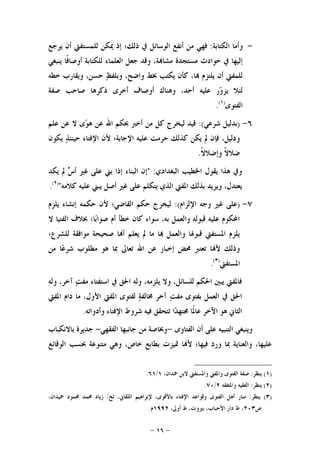 - وأما الكتابة: فهي من أنفع الوسائل في ذلك؛ إذ يمكن للمستفتي أن يرجع
إليها في حوادث مستجدة مشابهة، وقد جعل العلماء للكتابة أوصافًا ينبغي
للمفتي أن يلتزم بها، كأن يكتب بخط واضح، وبلفظٍ حسن، ويقارب خطه
لئلا يزوّر عليه أحد، وهناك أوصاف أخرى ذكرها صاحب صفة
الفتوى(١).
٦- (بدليل شرعي): قيد ليخرج كل من أخبر بحكم الله عن هوًى لا عن علم
ودليل، فإن لم يكن كذلك حرمت عليه الإجابة؛ لأن الإفتاء حينئذٍ يكون
ضلالاً وإضلالاً.
وفي هذا يقول الخطيب البغدادي: "إن البناء إذا بني على غير أسٍّ لم يكد
يعتدل، ويريد بذلك المفتي الذي يتكلم على غير أصل يبني عليه كلامه"(٢).
٧- (على غير وجه الإلزام): ليخرج حكم القاضي؛ لأن حكمه إنشاء يلزم
المحكوم عليه قبوله والعمل به، سواء كان خطأ أم صوابًا، بخلاف الفتيا لا
يلزم المستفتي قبولها والعمل بها ما لم يعلم أنها صحيحة موافقة للشرع؛
وذلك لأنها تعتبر محض إخبار عن الله تعالى بما هو مطلوب شرعًا من
المستفتي(٣).
فالمفتي يبين الحكم للسائل، ولا يلزمه، وله الحق في استفتاء مفتٍ آخر، وله
الحق في العمل بفتوى مفتٍ آخر مخالفةٍ لفتوى المفتي الأول، ما دام المفتي
الثاني هو الآخر عالمًا مجتهدًا تتحقق فيه شروط الإفتاء وأدواته.
وينبغي التنبيه على أن الفتاوى -وبخاصة من جانبها الفقهي- جديرة بالانكباب
عليها، والعناية بما ورد فيها؛ لأنها تميزت بطابع خاص، وهي متنوعة بحسب الوقائع
(١) ينظر: صفة الفتوى والمفتي والمستفتي لابن حمدان، ٦١/١.
(٢) ينظر: الفقيه والمتفقه ٧٠/٢.
(٣) ينظر: منار أهل الفتوى وقواعد الإفتاء بالأقوى، لإبراهيم اللقاني، تح/ زياد محمد محمود حميدان،
ص٢٠٣، ط دار الأحباب، بيروت، ط أولى، ١٩٩٢م.
- ١٦ -